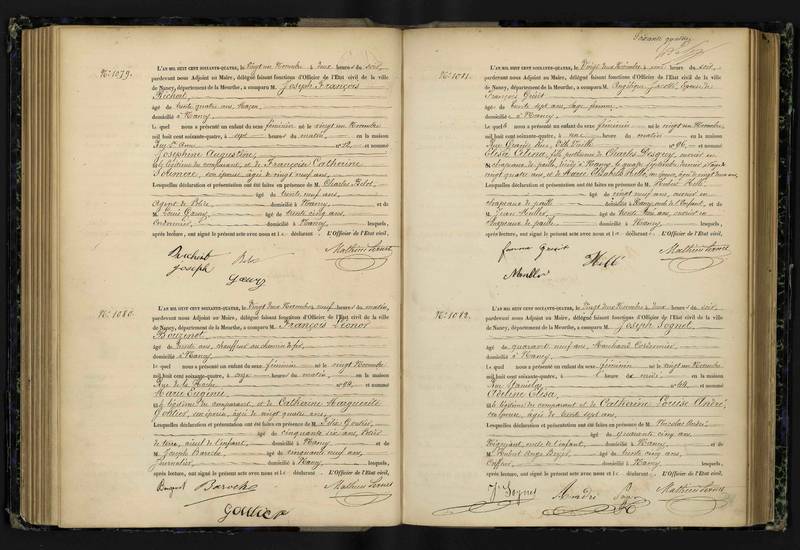 N.° 1079.
L'AN MIL HUIT CENT SOIXANTE-QUATRE, le Vingt un Novembre à deux heures du soir,
pardevant nous Adjoint au Maire, délégué faisant fonctions d'Officier de l'Etat civil de la ville
de Nancy, département de la Meurthe, a comparu M. Joseph François
âgé de trente quatre ans,
domicilié à Nancy
Lequel nous a présenté un enfant du sexe féminin né le vingt un Novembre
mil huit cent soixante-quatre, à sept heures du matin, en la maison
N.° 12, et nommé
Joséphine Augustine,
fille légitime du comparant, et de Françoise Catherine
son épouse âgée de vingt neuf ans,
Lesquelles déclaration et présentation ont été faites en présence de M. Charles
âgé de trente neuf ans,
domicilié à Nancy et de
M. Louis âgé de trente cinq ans,
Cordonnier, domicilié à Nancy lesquels,
après lecture, ont signé le présent acte avec nous et le déclarant. L'Officier de l'Etat civil,
Joseph
N.° 1080.
L'AN MIL HUIT CENT SOIXANTE-QUATRE, le Vingt deux Novembre à neuf heures du matin,
pardevant nous Adjoint au Maire, délégué faisant fonctions d'Officier de l'Etat civil de la ville
de Nancy, département de la Meurthe, a comparu M. François Léonor
âgé de trente ans, chauffeur au chemin de fer,
domicilié à Nancy
Lequel nous a présenté un enfant du sexe féminin né le vingt Novembre
mil huit cent soixante-quatre, à onze heures du matin, en la maison
Rue de la et nommé
Marie Eugénie,
fille légitime du comparant et de Catherine Marguerite
son épouse, âgée de vingt quatre ans,
Lesquelles déclaration et présentation ont été faites en présence de M.
âgé de cinquante six ans, Potier
de terre, aïeul de l'enfant, domicilié à Nancy et de
M. Joseph Baroche âgé de cinquante neuf ans,
Journalier domicilié à Nancy lesquels,
après lecture, ont signé le présent acte avec nous et le déclarant. L'Officier de l'Etat civil,
Baroche
Soixante quatre
N.° 1081.
L'AN MIL HUIT CENT SOIXANTE-QUATRE, le Vingt deux Novembre à une heure du soir,
pardevant nous Adjoint au Maire, délégué faisant fonctions d'Officier de l'Etat civil de la ville
de Nancy, département de la Meurthe, a comparu M. Angélique Jacotté, Epouse de
François
âgé de trente sept ans, sage femme,
domiciliée à Nancy
Laquelle nous a présenté un enfant du sexe féminin né le vingt un Novembre
mil huit cent soixante-quatre, à une heure du matin en la maison
Rue Grande Rue, Ville Vieille N.° 96, et nommé
Elise Alina, fille posthume de Charles ouvrier en
chapeaux de paille, décédé à Nancy, le quinze septembre dernier, à l'âge de
vingt quatre ans, et de Marie Elisabeth son épouse, âgée de vingt deux ans,
Lesquelles déclaration et présentation ont été faites en présence de M. Hubert
âgé de vingt neuf ans, ouvrier en
chapeaux de paille domicilié à Nancy, oncle de l'Enfant, et de
M. Jean Muller âgé de trente ans, ouvrier en
chapeaux de paille, domicilié à Nancy lesquels,
après lecture, ont signé le présent acte avec nous et la déclarante. L'Officier de l'Etat civil,
femme
Muller
N.° 1082.
L'AN MIL HUIT CENT SOIXANTE-QUATRE, le Vingt deux Novembre à deux heures du soir,
pardevant nous Adjoint au Maire, délégué faisant fonctions d'Officier de l'Etat civil de la ville
de Nancy, département de la Meurthe, a comparu M. Joseph
âgé de quarante neuf ans, Marchand Cordonnier
domicilié à Nancy
Lequel nous a présenté un enfant du sexe féminin né le vingt un Novembre
mil huit cent soixante-quatre, à heure de midi en la maison
Rue Stanislas, N.° 44, et nommé
Adeline Elisa,
fille légitime du comparant et de Catherine Louise André,
son épouse, âgée de trente sept ans,
Lesquelles déclaration et présentation ont été faites en présence de M. Nicolas André,
âgé de quarante cinq ans,
Négociant, oncle de l'enfant, domicilié à Nancy et de
M. Ange âgé de trente cinq ans,
Coiffeur domicilié à Nancy lesquels,
après lecture, ont signé le présent acte avec nous et le déclarant. L'Officier de l'Etat civil,
André